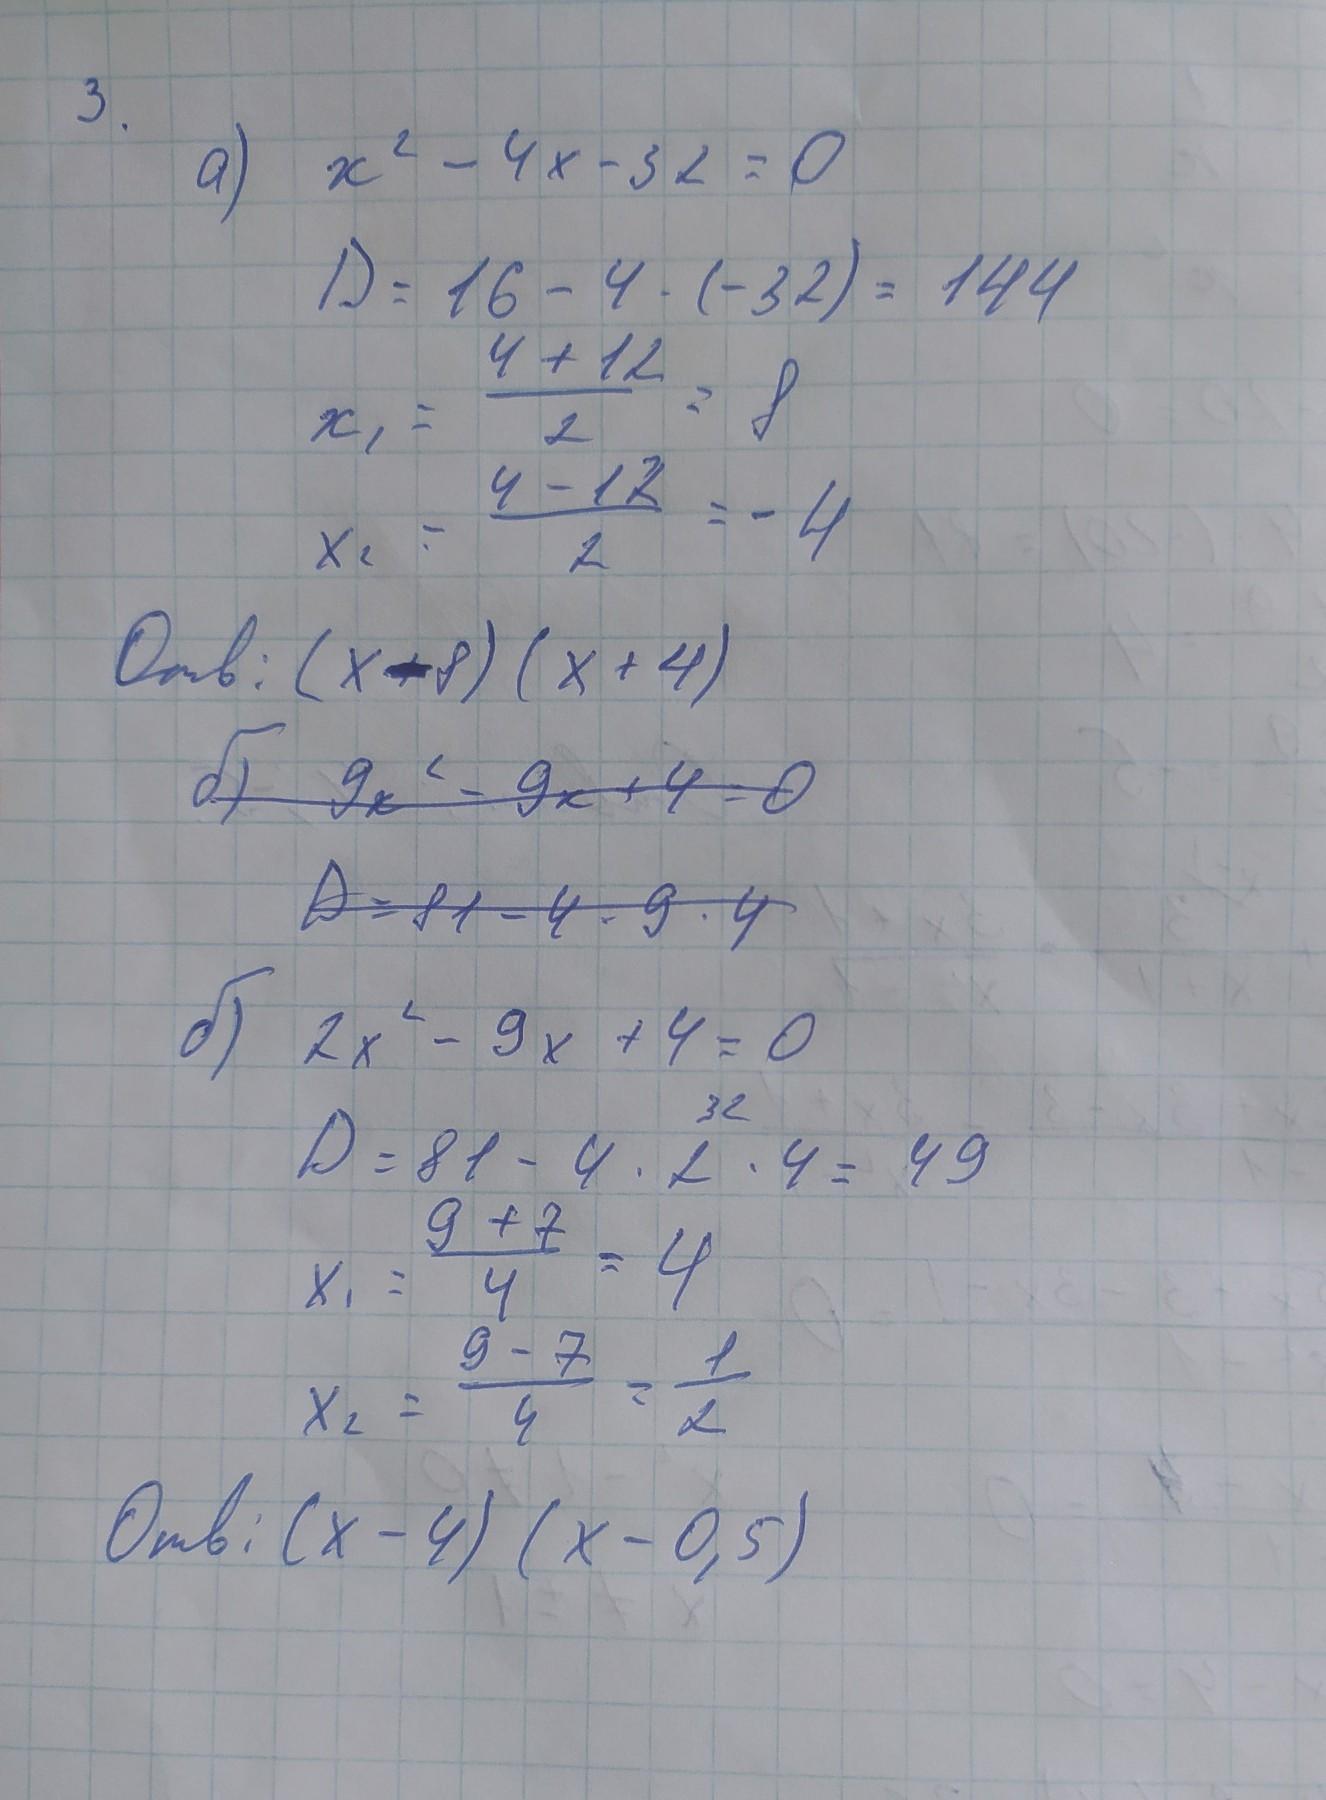 3.
а) x² - 4x - 32 = 0
D = 16 - 4 · (-32) = 144
x₁ = (4 + 12)/2 = 8
x₂ = (4 - 12)/2 = -4
Отв: (x - 8) (x + 4)
б) 9x² - 9x + 4 = 0
D = 81 - 4 · 9 · 4
б) 2x² - 9x + 4 = 0
32
D = 81 - 4 · 2 · 4 = 49
x₁ = (9 + 7)/4 = 4
x₂ = (9 - 7)/4 = 1/2
Отв: (x - 4) (x - 0,5)